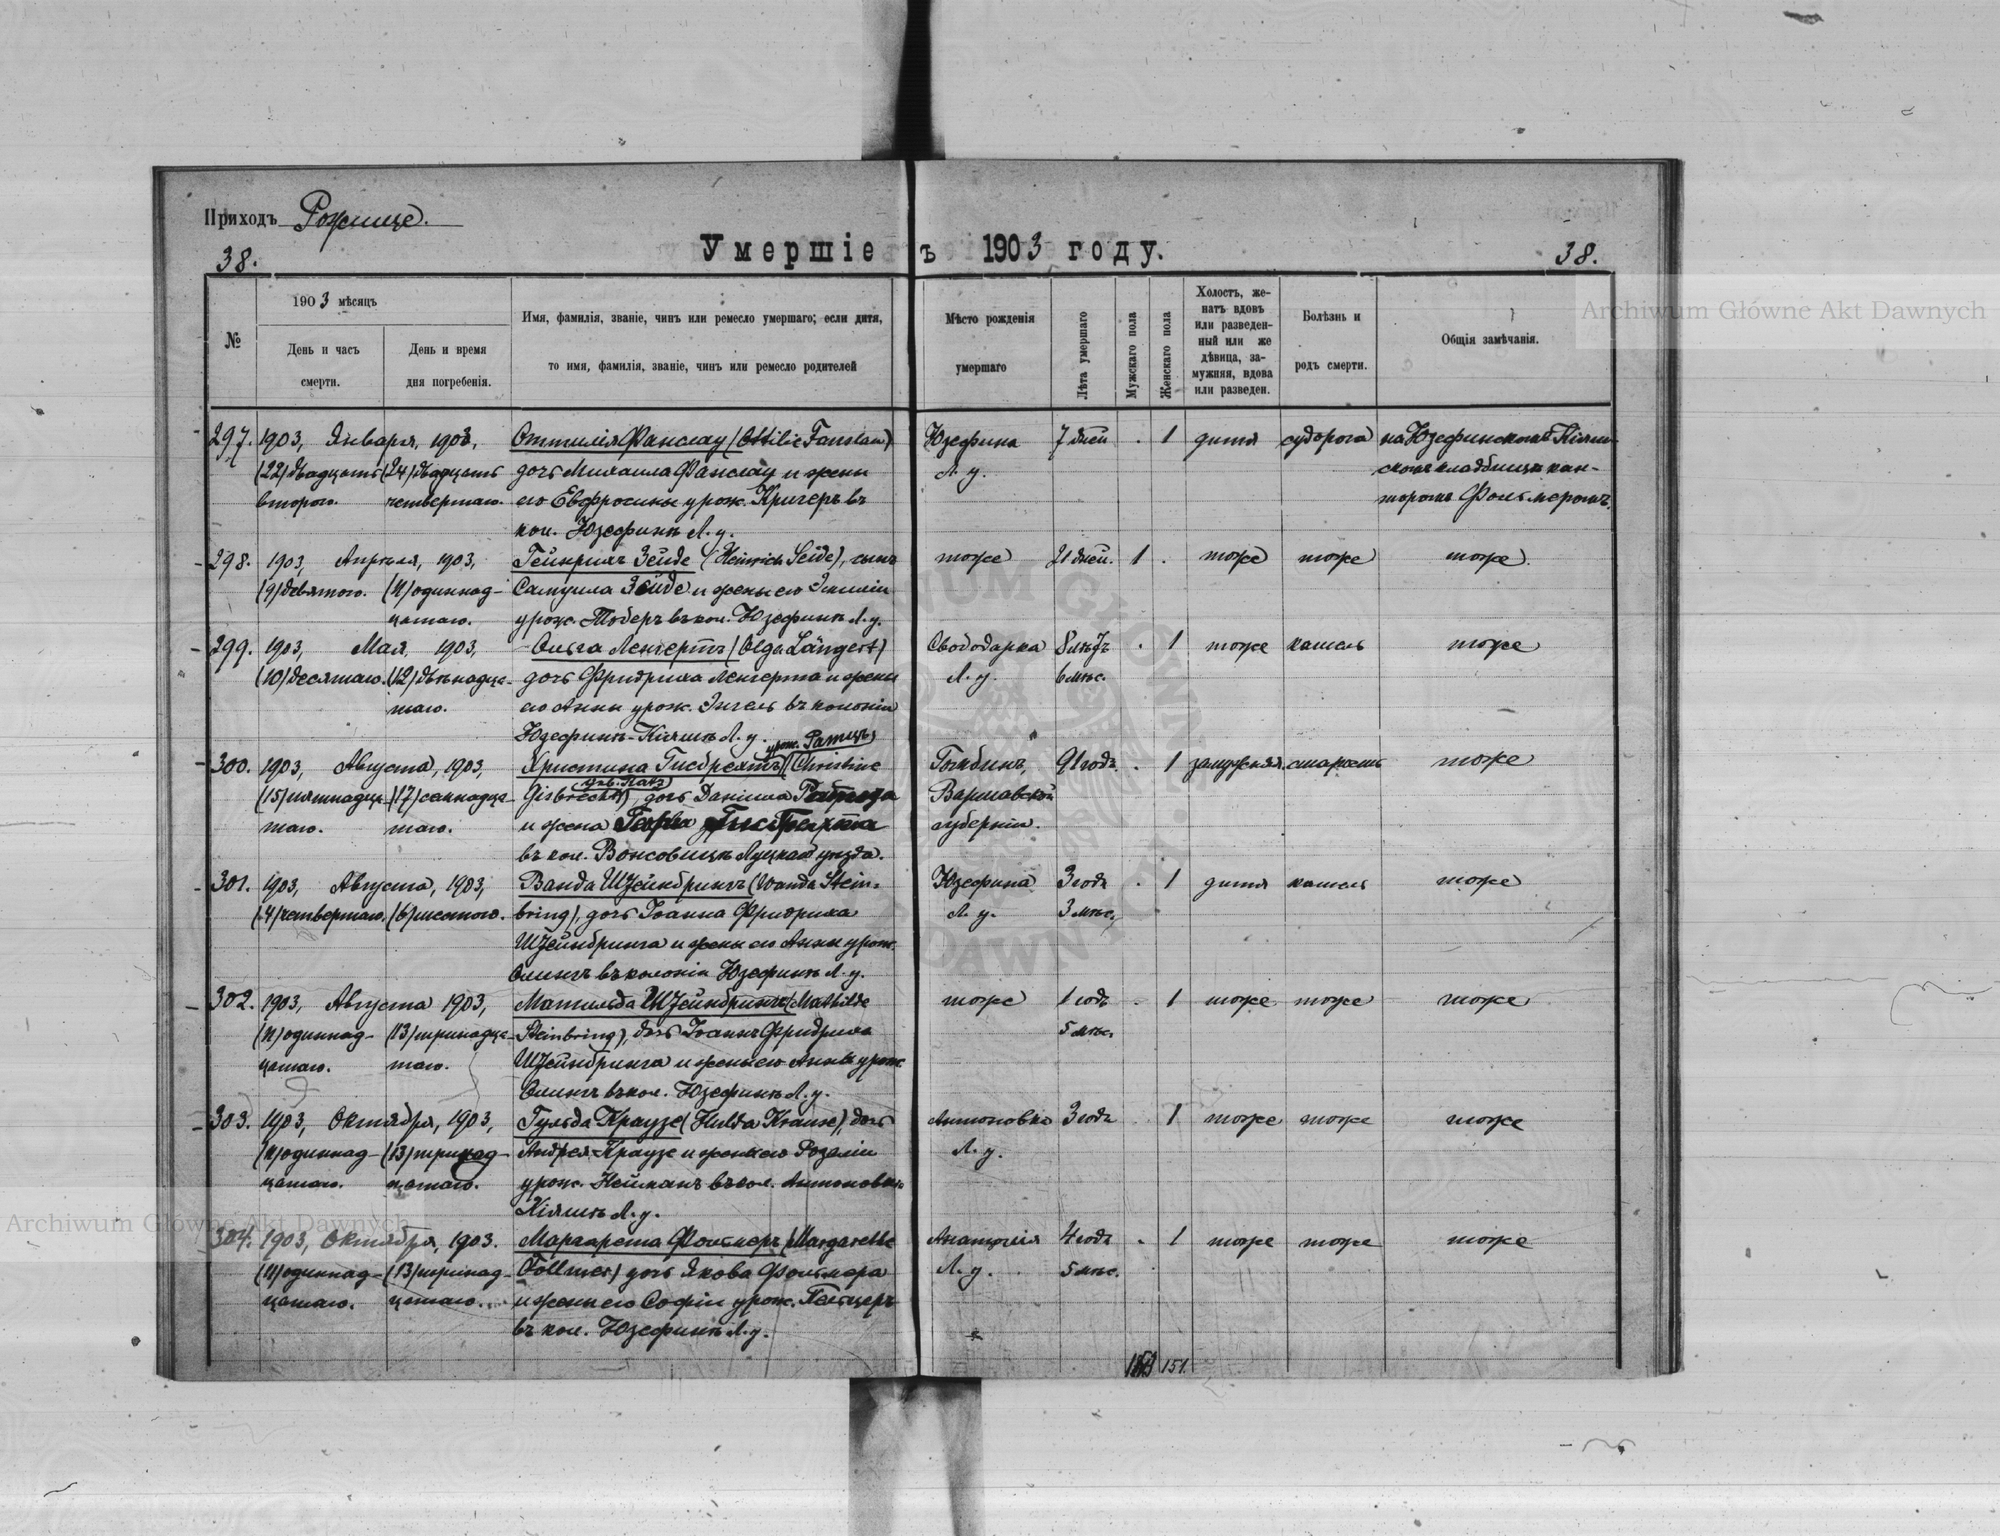 Приходъ Рожище.
Умершіе въ 1903 году.
38.
38.
№
1903 мѣсяцъ
День и часъ
смерти.
День и время
дня погребенія.
Имя, фамилія, званіе, чинъ или ремесло умершаго; если дитя,
то имя, фамилія, званіе, чинъ или ремесло родителей
Мѣсто рожденія
умершаго
Лѣта умершаго
Мужскаго пола
Женскаго пола
Холостъ, же-
натъ вдовъ
или разведен-
ный или же
дѣвица, за-
мужняя, вдова
или разведен.
Болѣзнь и
родъ смерти.
Общія замѣчанія.
297. 1903, Января, 1903, Оттилія Фанслау (Ottilie Fanslau) Юзефина 7 дней . 1 дитя судорога на Юзефинском Кіяш-
(22) двадцать (24) двадцать дочь Михаила Фанслау и жены Л. у. скомъ кладбищѣ кан-
второго. четвертаго. его Евфросины урож. Кригеръ въ торомъ Фольмеромъ.
кол. Юзефинѣ Л. у.
298. 1903, Апрѣля, 1903, Гейнрихъ Зейде (Heinrich Seide), сынъ тоже 21 дней. 1 . тоже тоже тоже.
(9) девятого. (11) одиннад- Самуила Зейде и жены его Эмиліи
цатаго. урож. Тоберъ въ кол. Юзефинѣ Л. у.
299. 1903, Мая, 1903, Ольга Ленгертъ (Olga Längert) Свободарка 8 лѣтъ . 1 тоже кашель тоже
(10) десятаго. (12) двѣнадца- дочь Фридриха Ленгерта и жены Л. у. 6 мѣс.
таго. его Анны урож. Энгель въ колоніи
Юзефинѣ-Кіяшѣ Л. у.
урож. Ратцъ
300. 1903, Августа, 1903, Христина Гисбрехтъ (Christine Гомбинъ, 91 годъ . 1 замужняя. старость тоже
(15) пятнадца- (17) семнадца- Gisbrecht), дочь Даніила Варшавской
таго. таго. и жена Гисбрехта губерніи.
въ кол. Вонсовицѣ Луцкаго уѣзда.
301. 1903, Августа, 1903, Ванда Штейнбрингъ (Wanda Stein- Юзефина 3 года . 1 дитя кашель тоже
(4) четвертаго. (6) шестого. bring), дочь Іоанна Фридриха Л. у. 3 мѣс.
Штейнбринга и жены его Анны урож.
въ колоніи Юзефинѣ Л. у.
302. 1903, Августа 1903, Матильда Штейнбрингъ (Mathilde тоже 1 годъ . 1 тоже тоже тоже
(11) одиннад- (13) тринадца- Steinbring), дочь Іоанна Фридриха 5 мѣс.
цатаго. таго. Штейнбринга и жены его Анны урож.
въ кол. Юзефинѣ Л. у.
303. 1903, Октября, 1903, Гульда Краузе (Hulda Krause), дочь Антоновка 3 года . 1 тоже тоже тоже
(11) одиннад- (13) тринад- Андрея Краузе и жены его Розаліи Л. у.
цатаго. цатаго. урож. Нейманъ въ кол. Антоновкѣ
Кіяшѣ Л. у.
304. 1903, Октября, 1903. Маргарета Фольмеръ (Margarethe Анатолія 4 года . 1 тоже тоже тоже
(11) одиннад- (13) тринад- Föllmer) дочь Якова Фольмера Л. у. 5 мѣс.
цатаго. цатаго. и жены его Софіи урож. Пельцеръ
въ кол. Юзефинѣ Л. у.
151.
Archiwum Główne Akt Dawnych
Archiwum Główne Akt Dawnych